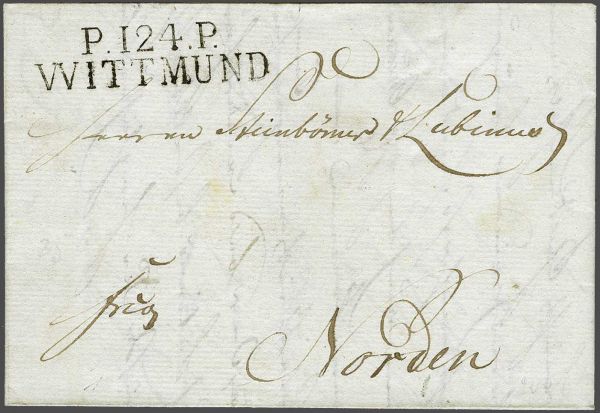 P.124.P.
WITTMUND
Herren Steinbömer & Lubinus
Norden